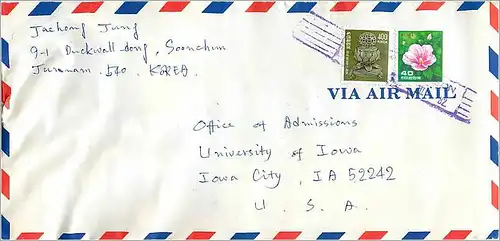 Jaehong Jung
9-1 Duckwall-dong, Soonchun
Junnam 540 KOREA
400
KOREA
40
VIA AIR MAIL
Office of Admissions
University of Iowa
Iowa City, IA 52242
U. S. A.